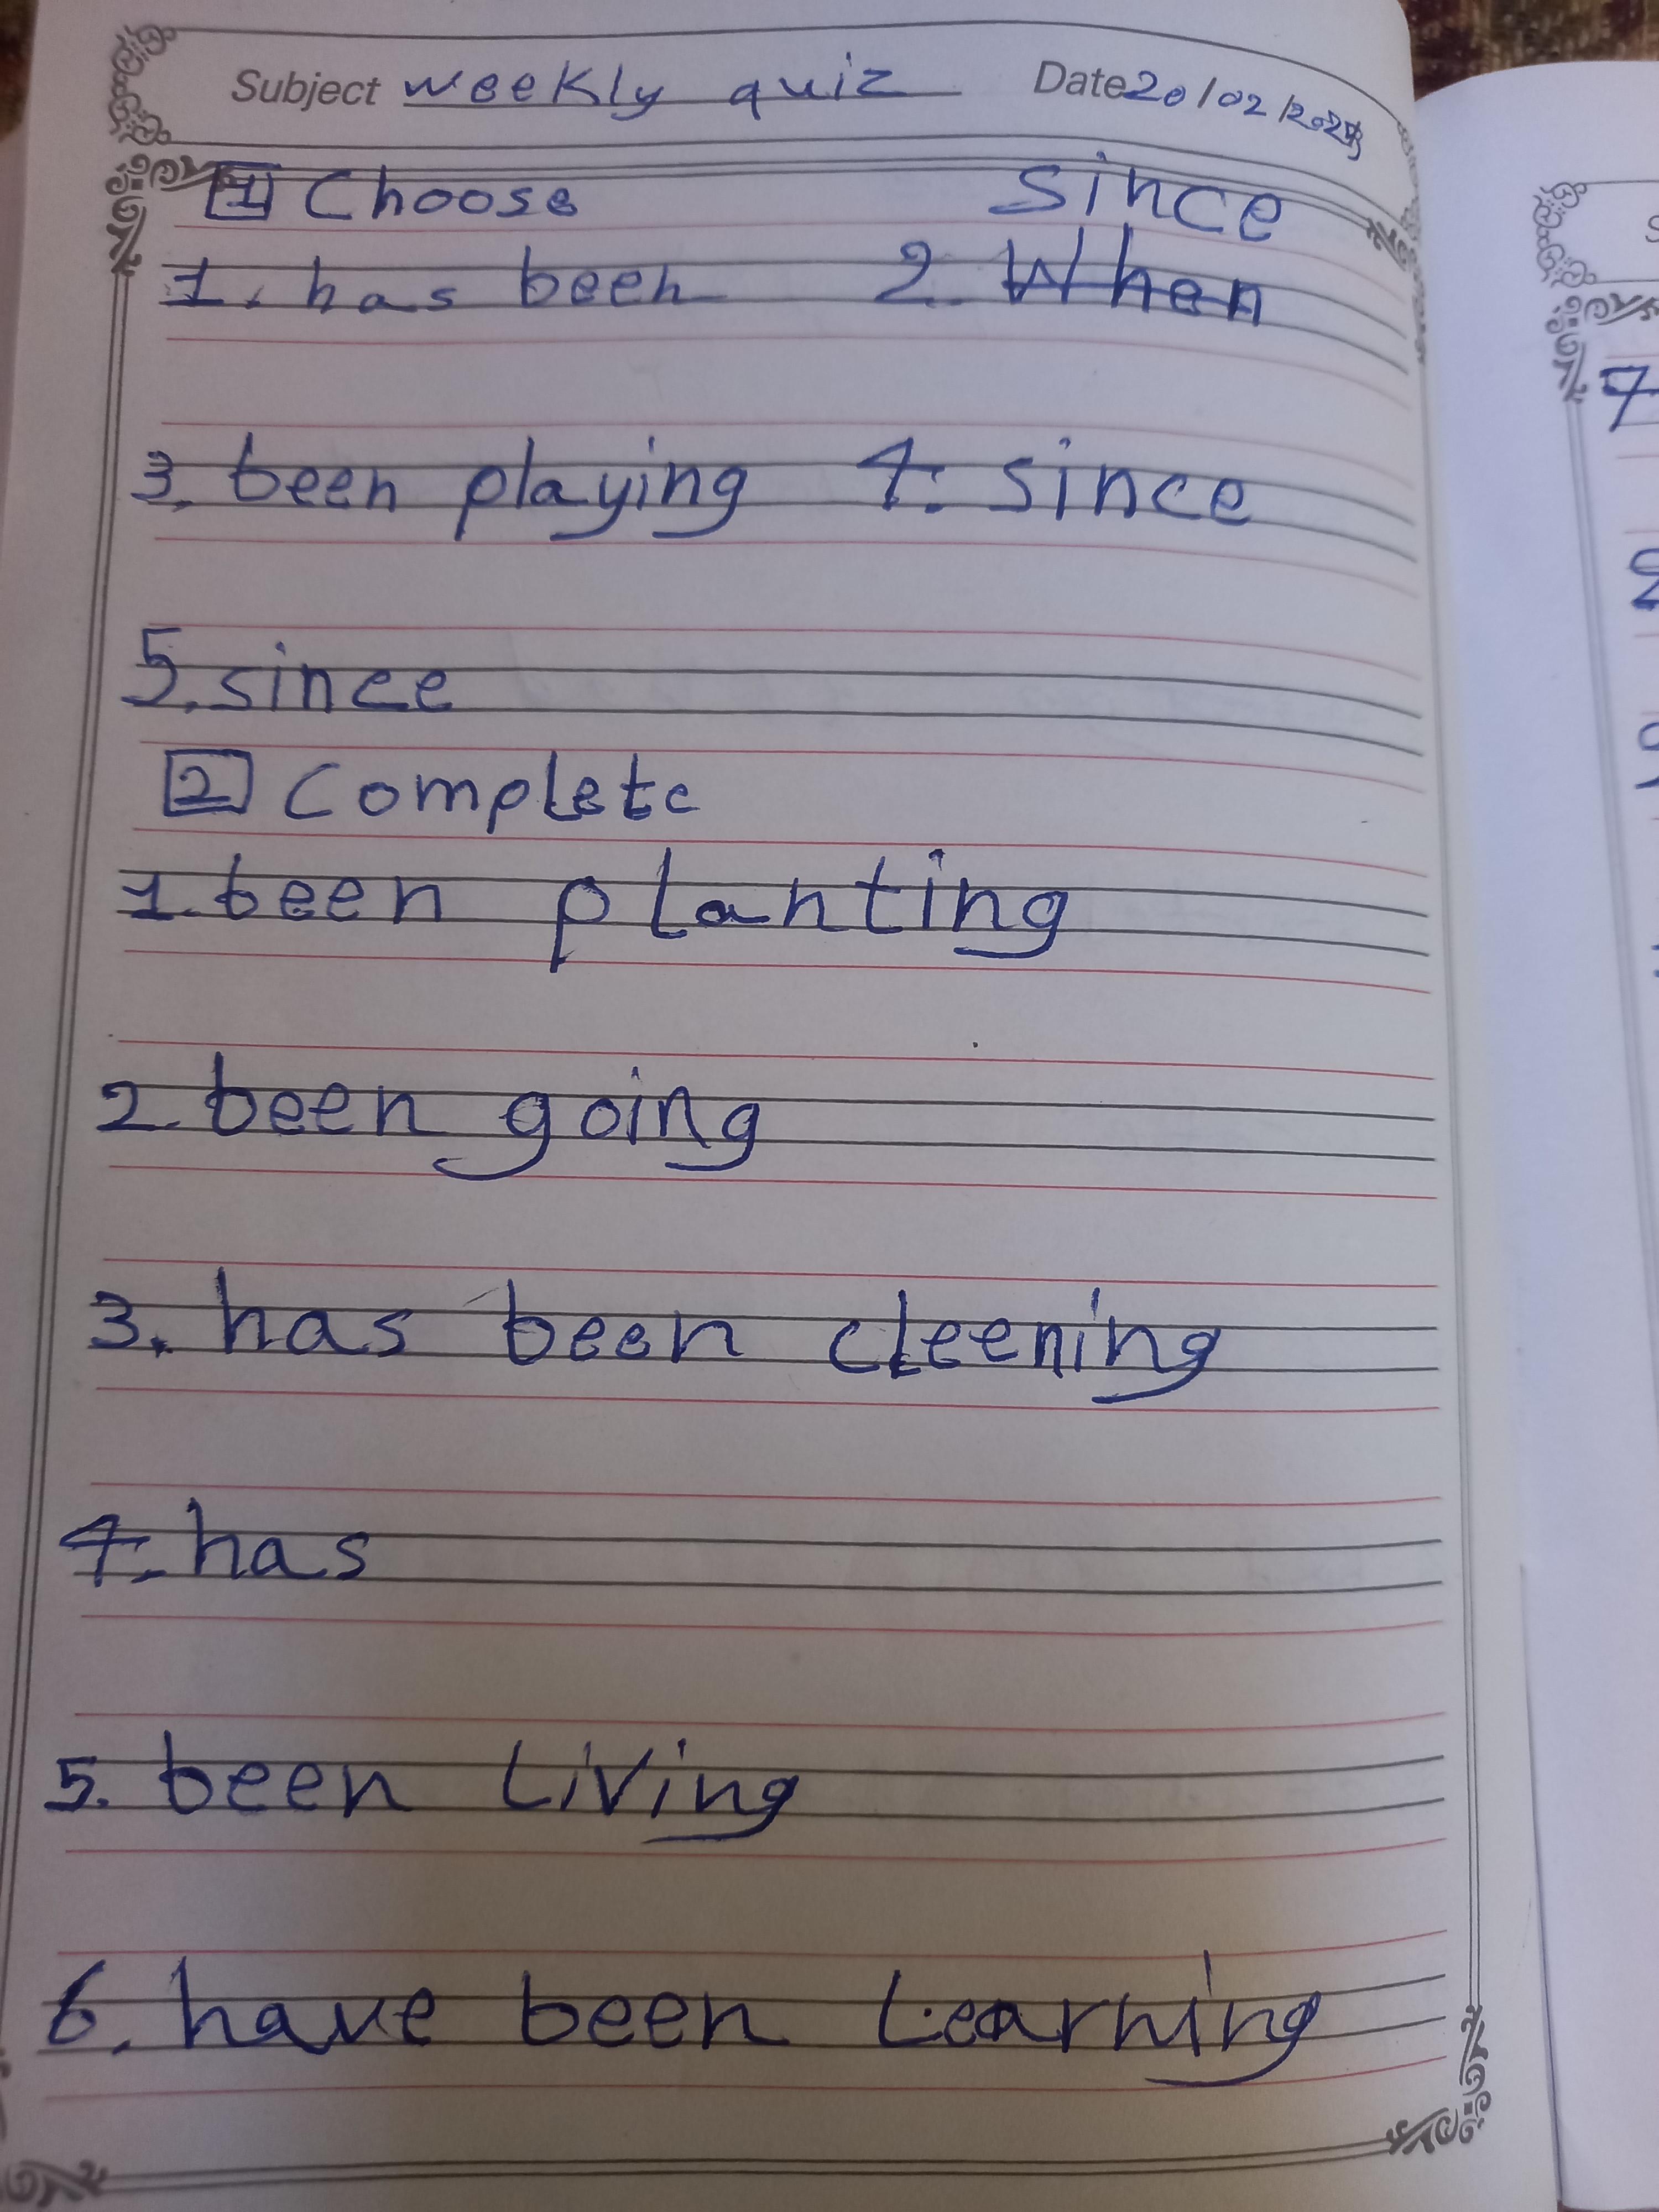 Subject weekly quiz Date 20/02/202
1 Choose since
1. has been 2. When
3. been playing 4. since
5. since
2 Complete
1. been planting
2. been going
3. has been cleening
4. has
5. been Living
6. have been Learning
7